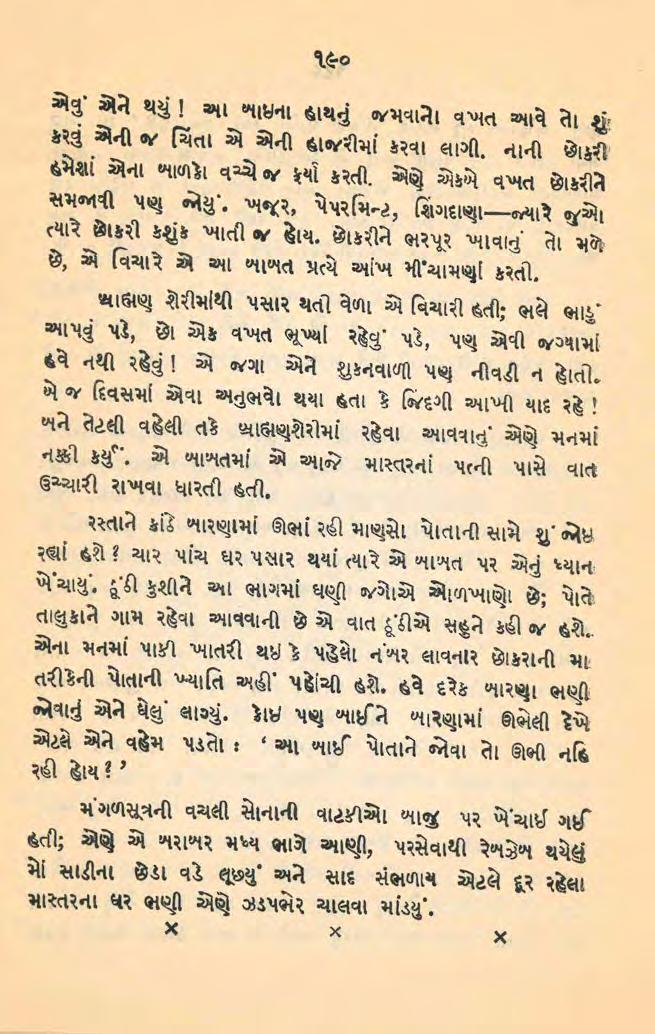 ૧૯૦
એવું એને થયું! આ બાઇના હાથનું જમવાનો વખત આવે તો શું
કરવું એની જ ચિંતા એ એની હાજરીમાં કરવા લાગી. નાની છોકરી
હમેશાં એના બાળકો વચ્ચે જ ફર્યા કરતી. એણે એકબે વખત છોકરીને
સમજાવી પણ જોયું. ખજૂર, પેપરમિન્ટ, શિંગદાણા—જ્યારે જુઓ
ત્યારે છોકરી કશુંક ખાતી જ હોય. છોકરીને ભરપૂર ખાવાનું તો મળે
છે, એ વિચારે એ આ બાબત પ્રત્યે આંખ મીંચામણાં કરતી.
બ્રાહ્મણ શેરીમાંથી પસાર થતી વેળા એ વિચારી હતી; ભલે ભાડું
આપવું પડે, છો એક વખત ભૂખ્યાં રહેવું પડે, પણ એવી જગ્યામાં
હવે નથી રહેવું! એ જગા એને શુકનવાળી પણ નીવડી ન હોતી.
એ જ દિવસમાં એવા અનુભવો થયા હતા કે જિંદગી આખી યાદ રહે!
બને તેટલી વહેલી તકે બ્રાહ્મણશેરીમાં રહેવા આવવાનું એણે મનમાં
નક્કી કર્યું. એ બાબતમાં એ આજે માસ્તરનાં પત્ની પાસે વાત
ઉચ્ચારી રાખવા ધારતી હતી.
રસ્તાને કાંઠે બારણામાં ઊભાં રહી માણસો પોતાની સામે શું જોઇ
રહ્યાં હશે? ચાર પાંચ ઘર પસાર થયાં ત્યારે એ બાબત પર એનું ધ્યાન
ખેંચાયું. ઠૂંઠી કુશીને આ ભાગમાં ઘણી જગોએ ઓળખાણો છે; પોતે
તાલુકાને ગામ રહેવા આવવાની છે એ વાત ઠૂંઠીએ સહુને કહી જ હશે.
એના મનમાં પાકી ખાતરી થઇ કે પહેલો નંબર લાવનાર છોકરાની મા
તરીકેની પોતાની ખ્યાતિ અહીં પહોંચી હશે. હવે દરેક બારણા ભણી
જોવાનું એને ઘેલું લાગ્યું. કોઇ પણ બાઈને બારણામાં ઊભેલી દેખે
એટલે એને વહેમ પડતો : ‘ આ બાઈ પોતાને જોવા તો ઊભી નહિ
રહી હોય? ’
મંગળસૂત્રની વચલી સોનાની વાટકીઓ બાજુ પર ખેંચાઈ ગઈ
હતી; એણે એ બરાબર મધ્ય ભાગે આણી, પરસેવાથી રેબઝેબ થયેલું
મોં સાડીના છેડા વડે લૂછ્યું અને સાદ સંભળાય એટલે દૂર રહેલા
માસ્તરના ઘર ભણી એણે ઝડપભેર ચાલવા માંડયું.
× × ×